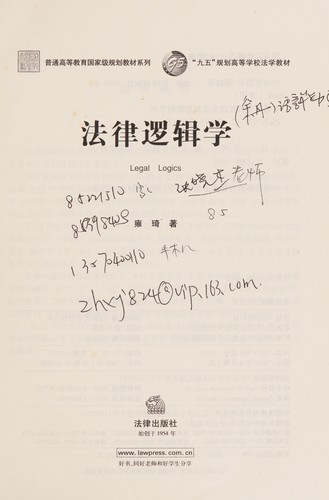 普通高等教育国家级规划教材系列
"九五"规划高等学校法学教材
法律逻辑学
Legal Logics
85221510
张晓杰老师
雍琦 著
85
手机
zhxj824@vip.163.com.
法律出版社
始创于1954年
www.lawpress.com.cn
好书,同好老师和好学生分享